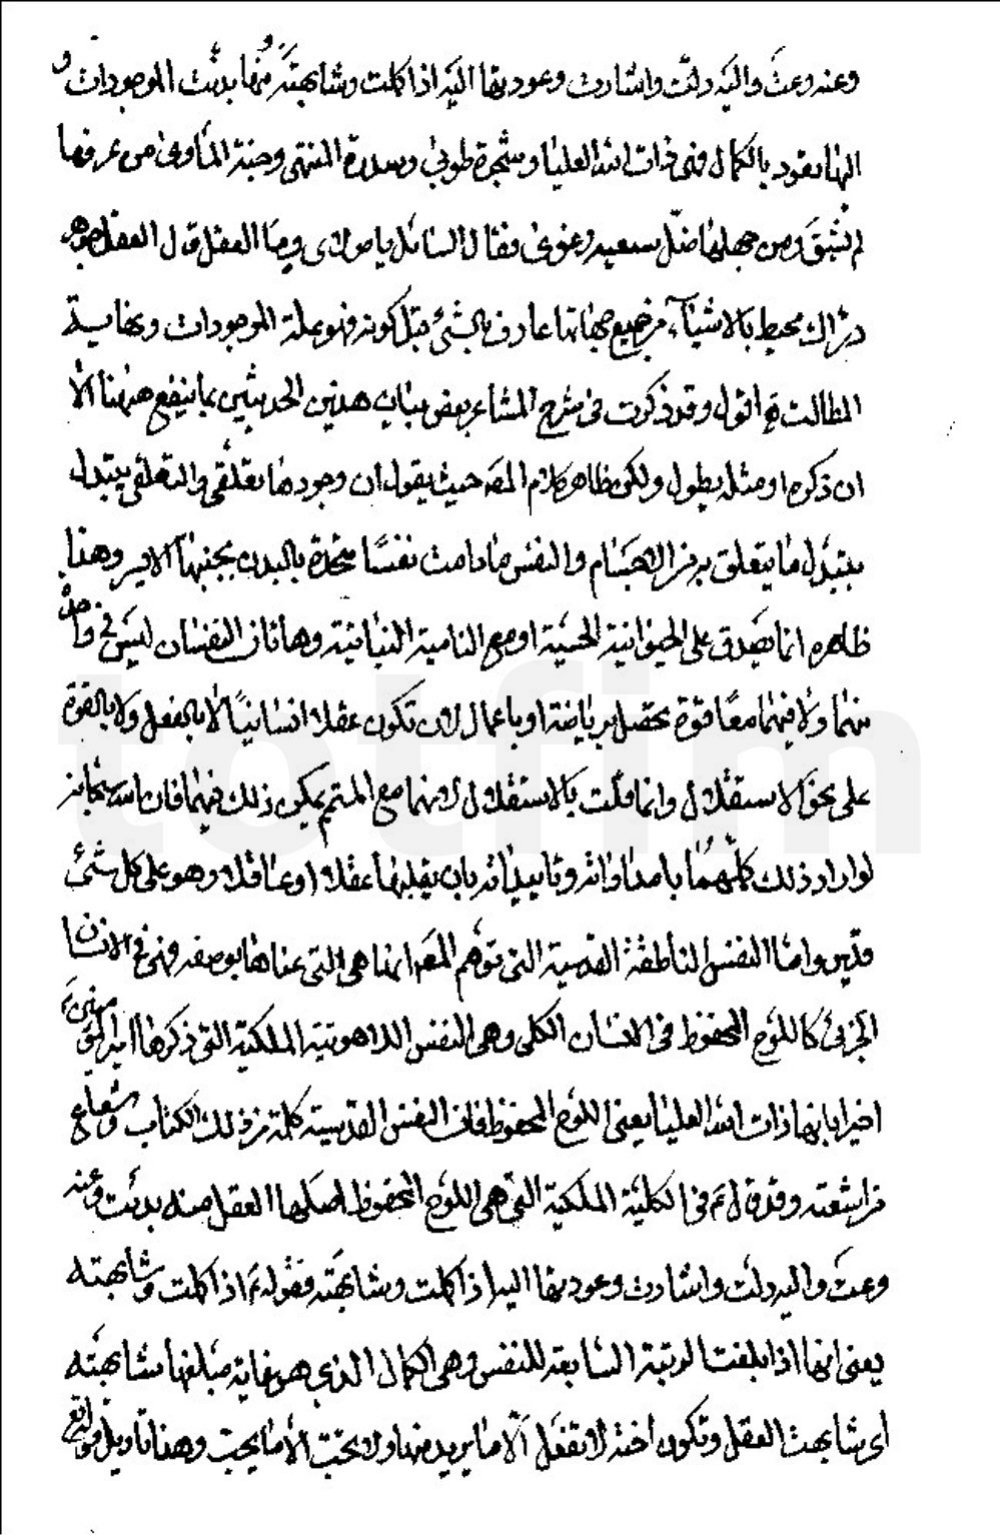 وعنه وعت واليه دلت واشارت وعودتها اليه اذا كملت وشابهته ومنها بدئت الموجودات و
اليها تعود بالكمال فهي ذات الله العليا وشجرة طوبى وسدرة المنتهى وجنة المأوى من عرفها
لم يشق ومن جهلها ضل سعيه وغوى فقال السائل يا مولاى وما العقل قال العقل جوهر
دراك محيط بالاشياء من جميع جهاتها عارف بالشئ قبل كونه فهو علة الموجودات ونهاية
المطالب ه اقول وقد ذكرت فى شرح المشاعر بعض بيان هذين الحديثين بما ينفع هيهنا الا
ان ذكره او مثله يطول ولكن ظاهر كلام المص حيث يقول ان وجودها تعلقى والتعلقى يتبدل
بتبدل ما يتعلق به من الاجسام والنفس ما دامت نفسا متحدة بالبدن بجنبها الايسر وهذا
ظاهره انما يصدق على الحيوانية الحسية او مع النامية النباتية وهاتان النفسان ليس فى واحدة
منهما ولا فيهما معا قوة تحصل برياضة او باعمال لان تكون عقلا انسانيا لا بالفعل ولا بالقوة
على نحو الاستقلال وانما قلت بالاستقلال لانهما مع المتمم يمكن ذلك فيهما فان الله سبحانه
لو اراد ذلك كلهما بامداداته وتاييداته بان يقلبهما عقلا او عاقلا وهو على كل شئ
قدير واما النفس الناطقة القدسية التى توهم المص انما هى التى عناها بوصفه فهى فى الانسان
الجزئى كاللوح المحفوظ فى الانسان الكلى وهى النفس اللاهوتية الملكية التى ذكرها امير المؤمنين ع
اخيرا بانها ذات الله العليا يعنى اللوح المحفوظ فان النفس القدسية كلمة من ذلك الكتاب وشعاع
من اشعته وقد قال ع فى الكلية الملكية التى هى اللوح المحفوظ اصلها العقل منه بدئت وعنه
وعت واليه دلت واشارت وعودتها اليه اذا كملت وشابهته فقوله ع اذا كملت وشابهته
يعنى انها اذا بلغت الرتبة السابعة للنفس وهى الكمال الذي هو غاية مبلغها شابهته
اى شابهت العقل وتكون اخته لا تفعل الا ما يريد منها ولا تحب الا ما يحب وهذا تاويل قوله تع